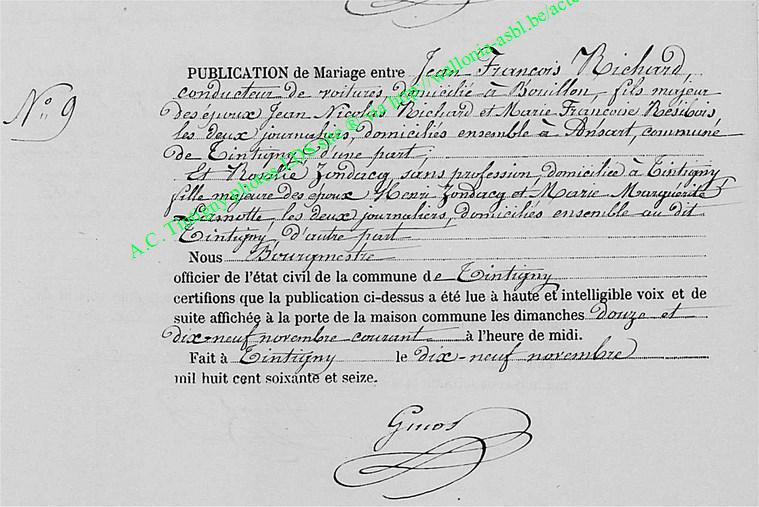 PUBLICATION de Mariage entre Jean François Richard,
N° 9
conducteur de voitures, domicilié à Bouillon, fils majeur
des époux Jean Nicolas Richard et Marie Françoise Résibois,
les deux journaliers, domiciliés ensemble à Ansart, commune
de Tintigny, d'une part;
Et Rosalie Zondacq, sans profession, domiciliée à Tintigny
fille majeure des époux Henri Zondacq et Marie Marguerite
les deux journaliers, domiciliés ensemble au dit
Tintigny, d'autre part
Nous Bourgmestre
officier de l'état civil de la commune de Tintigny
certifions que la publication ci-dessus a été lue à haute et intelligible voix et de
suite affichée à la porte de la maison commune les dimanches douze et
dix-neuf novembre courant à l'heure de midi.
Fait à Tintigny le dix-neuf novembre
mil huit cent soixante et seize.
A.C. Tintigny photos
via http://wallonia-asbl.be/acte